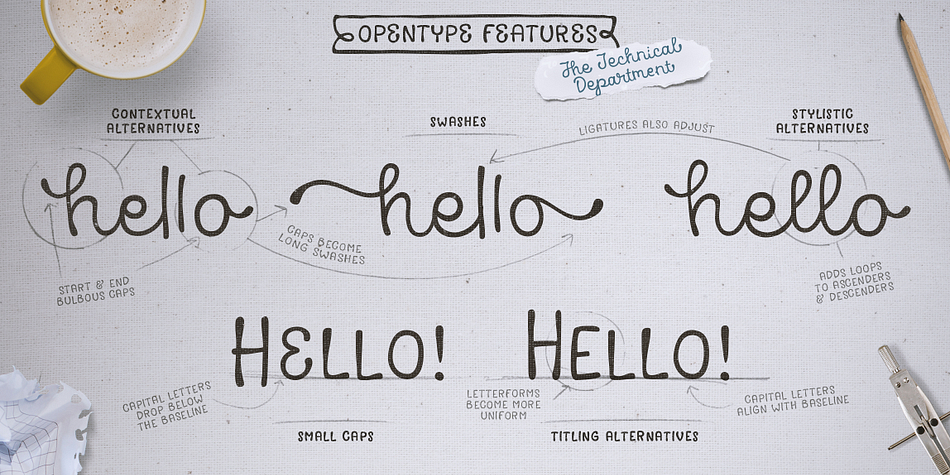 OPENTYPE FEATURES
The Technical
Department
CONTEXTUAL
ALTERNATIVES
SWASHES
LIGATURES ALSO ADJUST
STYLISTIC
ALTERNATIVES
hello
hello
hello
CAPS BECOME
LONG SWASHES
START & END
BULBOUS CAPS
ADDS LOOPS
TO ASCENDERS
& DESCENDERS
HELLO!
HELLO!
CAPITAL LETTERS
DROP BELOW
THE BASELINE
LETTERFORMS
BECOME MORE
UNIFORM
CAPITAL LETTERS
ALIGN WITH BASELINE
SMALL CAPS
TITLING ALTERNATIVES